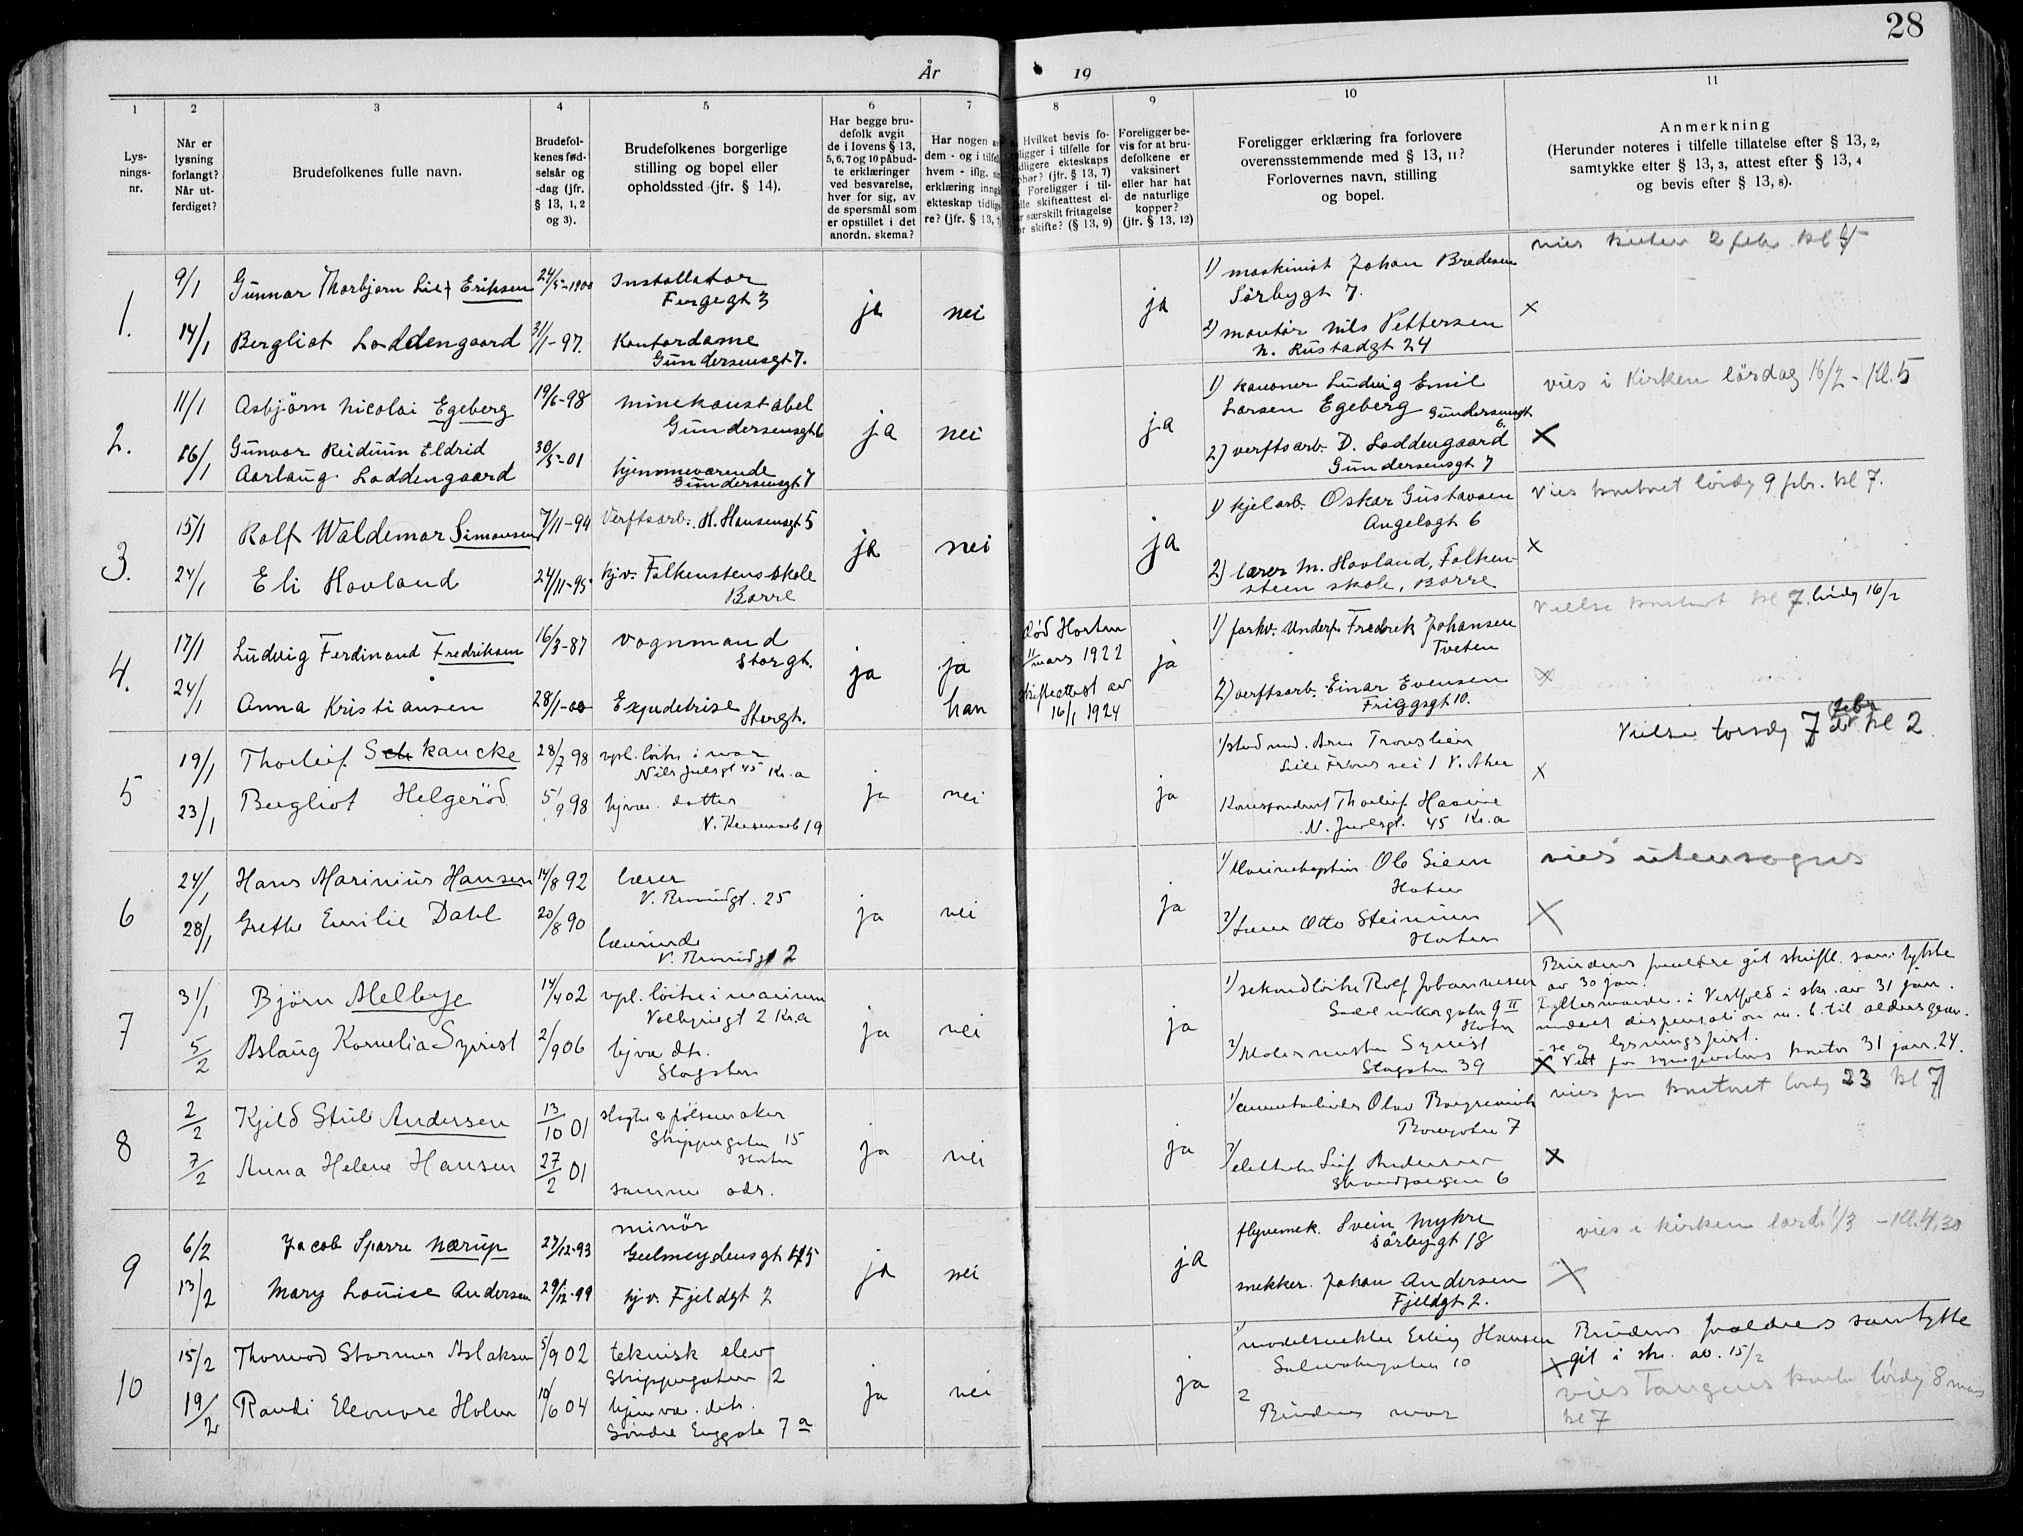 28
År 19
1
2
3
4
5
6
7
8
9
10
11
Lys-
nings-
nr.
Når er
lysning
forlangt?
Når ut-
ferdiget?
Brudefolkenes fulle navn.
Brudefol-
kenes fød-
selsår og
-dag (jfr.
§ 13, 1, 2
og 3).
Brudefolkenes borgerlige
stilling og bopel eller
opholdssted (jfr. § 14).
Har begge bru-
defolk avgit
de i lovens § 13,
5, 6, 7 og 10 påbud-
te erklæringer
ved besvarelse,
hver for sig, av
de spørsmål som
er opstillet i det
anordn. skema?
Har nogen
dem - og i tilfel
hvem - iflg.
erklæring inng
ekteskap tidlige
re? (jfr. § 13,
Hvilket bevis fo-
religger i tilfelle for
tidligere ekteskaps
ophør? (jfr. § 13, 7)
Foreligger i til-
felle skifteattest el-
ler særskilt fritagelse
for skifte? (§ 13, 9)
Foreligger be-
vis for at bru-
defolkene er
vaksinert
eller har hat
de naturlige
kopper?
(jfr. § 13, 12)
Foreligger erklæring fra forlovere
overensstemmende med § 13, 11?
Forlovernes navn, stilling
og bopel.
Anmerkning
(Herunder noteres i tilfelle tillatelse efter § 13, 2,
samtykke efter § 13, 3, attest efter § 13, 4
og bevis efter § 13, 8).
1.
9/1
14/1
Gunnar Thorbjørn Eriksen
Bergliot Loddengaard
24/5-1900
31/1-97.
Installatør
Fergegt 3
Kontordame
Gundersensgt 7.
ja
nei
ja
1) maskinist Johan Bredesen
Sørbygt 7.
2) montør Nils Pettersen
N. Rustadgt 24
2 febr. kl
x
2.
11/1
16/1
Asbjørn Nicolai Egeberg
Gunvor Reidunn Eldrid
Aarlaug Loddengaard
19/6-98
30/5-01
minekonstabel
Gundersensgt 6
hjemmeværende
Gundersensgt 7
ja
nei
ja
1) kanoner Ludvig Emil
Larsen Egeberg Gundersensgt
6.
2) verftsarb. D. Loddengaard
Gundersensgt 7
vies i Kirken lördag 16/2 - Kl. 5
x
3.
15/1
24/1
Rolf Waldemar Simonsen
Eli Hovland
7/11-94
24/11-95
Verftsarb. H. Hansensgt 5
hjv. Falkenstens skole
Borre
ja
nei
ja
1) kjelarb. Oskar Gustavsen
Angelsgt 6
2) lærer M. Hovland, Falken-
steen skole, Borre
Vies kontoret lördg 9 febr. kl 7.
x
4.
17/1
24/1
Ludvig Ferdinand Fredriksen
Anna Kristiansen
16/3-87
28/1-00
vognmand
Storgt.
Expedetrise
Storgt.
ja
ja
han
död Horten
11 mars 1922
skifteattest av
16/1 1924
ja
1) forhv. Underf. Fredrik Johansen
Tveten
2) verftsarb. Einar Evensen
Friggsgt 10.
Vielse kontoret kl 7 lördg 16/2
x
5
19/1
23/1
Thorleif Skancke
Bergliot Helgeröd
28/7 98
5/9 98
vpl. löitn. i mar
Niels Juelsgt 45 Kr.a
hjvær. datter
19
ja
nei
ja
1/ stud med. Arne
vei 1 V. Aker
Korrespondent Thorleif
N. Juelsgt. 45 Kr.a
Vielse torsdg 7 febr kl 2
x
6
24/1
28/1
Hans Marinius Hansen
Grethe Emilie Dahl
14/8 92
20/8 90
Lærer
25
Lærerinde
2
ja
nei
ja
1/ Marinekaptein Ole Siem
Horten
2/ Lærer Otto Steinmann
Horten
vies utensogns
x
7
31/1
5/2
Björn Melbye
Aslaug Kornelia Syvrist
14/4 02
2/9 06
vpl. löitn i marinen
2 Kr.a
hjvæ dtr.
Storgaten
ja
nei
ja
1/ sekondlöitn Rolf Johannesen
9 II
Horten
2/ Malermester Syvrist
Storgaten 39
Brudens forældre git skriftl. samtykke
av 30 jan.
Fylkesmanden i Vestfold i skr. av 31 jan.
meddelt dispensation m. h. til aldersgræn-
se og lysningsfrist.
x Viet paa sogneprestens kontor 31 jan. 24.
8
2/2
7/2
Kjeld Stub Andersen
Anna Helene Hansen
13/10 01
27/2 01
slagter & pölsemaker
Skippergaten 15
Horten
samme adr.
ja
nei
ja
1/
7
2/ elektriker Leif Andersen
6
vies paa kontoret lördg 23 kl 7
x
9
6/2
13/2
Jacob Sparre Nærup
Mary Louise Andersen
27/12-93
29/12-99
minör
Geelmeydensgt 15
hjv. Fjeldgt 2
ja
nei
ja
flyvemek. Svein Myhre
Sørbygt 18
snekker. Johan Andersen
Fjeldgt 2.
vies i kirken lørd. 1/3 - Kl. 4.30
x
10
15/2
19/2
Thormod Stormer Aslaksen
Randi Eleonore Holm
5/9 02
10/6 04
teknisk elev
Skippergaten 2
hjemvær. dtr.
Søndre Enggate 7 a
ja
nei
ja
1/ modelsnekker Erling Hansen
10
2
Brudens mor
Brudens forældres samtykke
x git i skr. av. 15/2
vies Tangens lördg 8 mars
kl 7